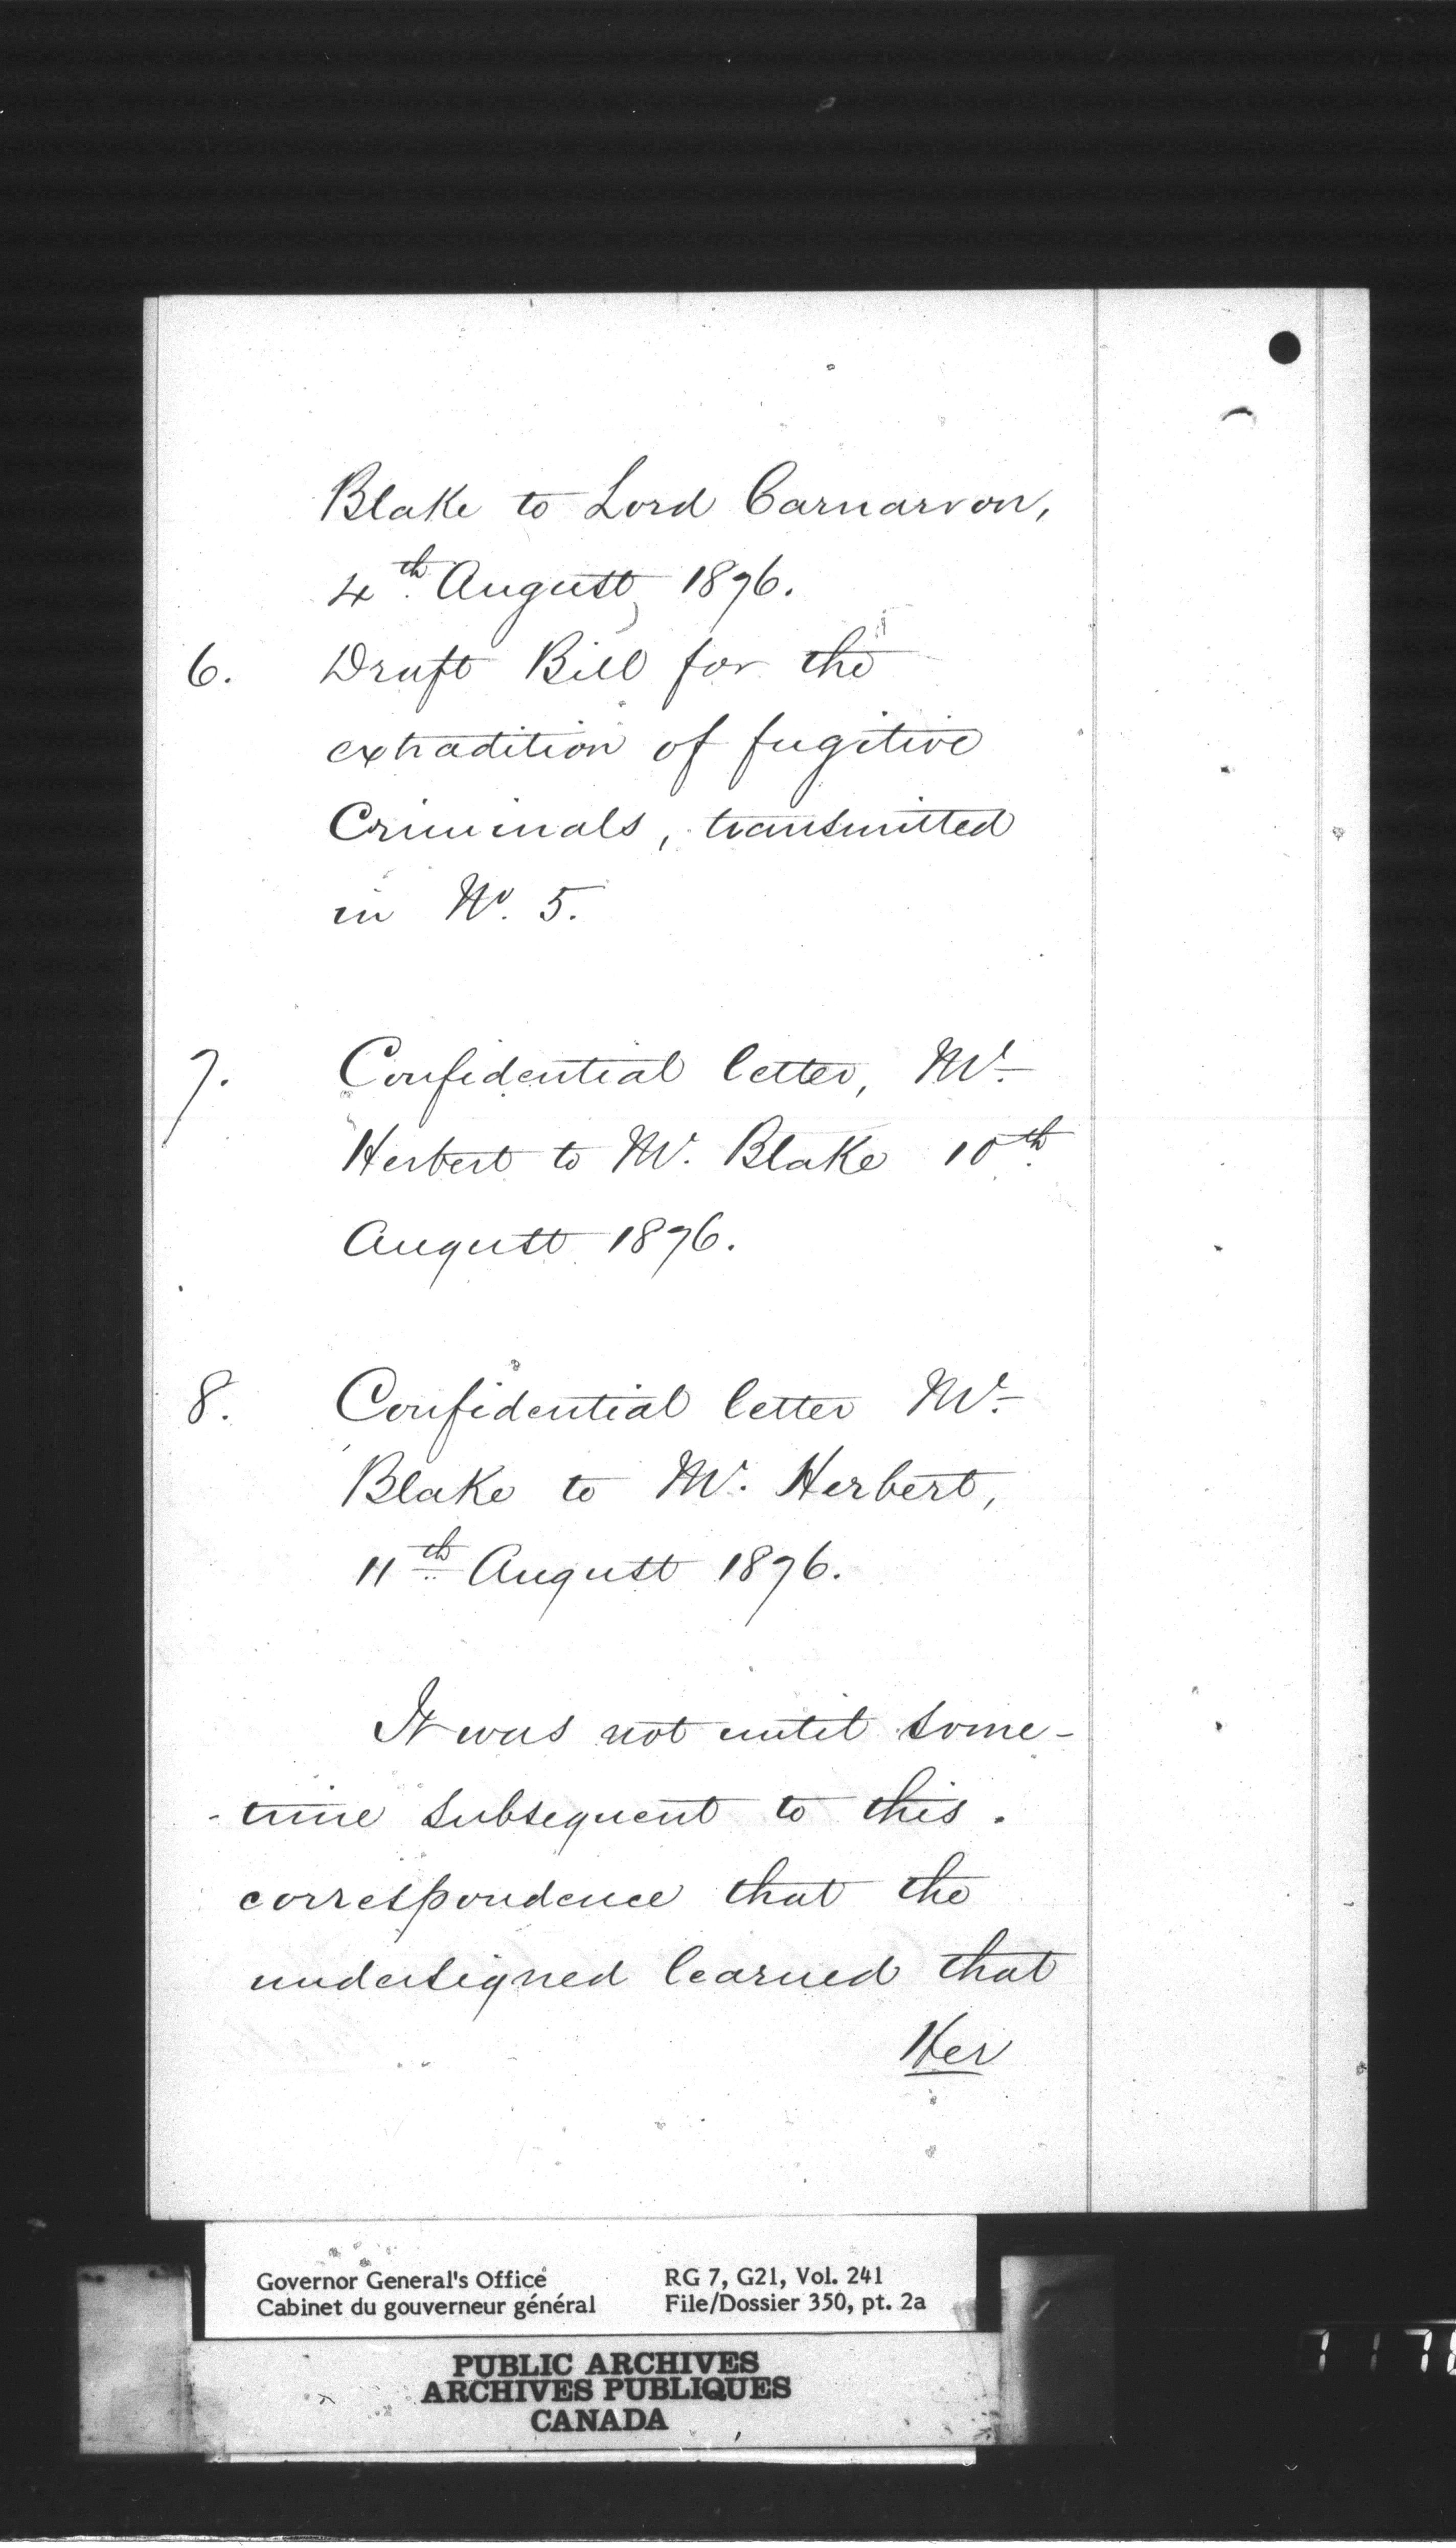 Blake to Lord Carnarvon,
4th. August 1876.
6. Draft Bill for the
extradition of fugitive
Criminals, transmitted
in No. 5.
7. Confidential letter, Mr.
Herbert to Mr. Blake 10th.
August 1876.
8. Confidential letter Mr.
Blake to Mr. Herbert,
11th. August 1876.
It was not until some-
-time subsequent to this
correspondence that the
undersigned learned that
Her
Governor General's Office RG 7, G21, Vol. 241
Cabinet du gouverneur général File/Dossier 350, pt. 2a
PUBLIC ARCHIVES
ARCHIVES PUBLIQUES
CANADA